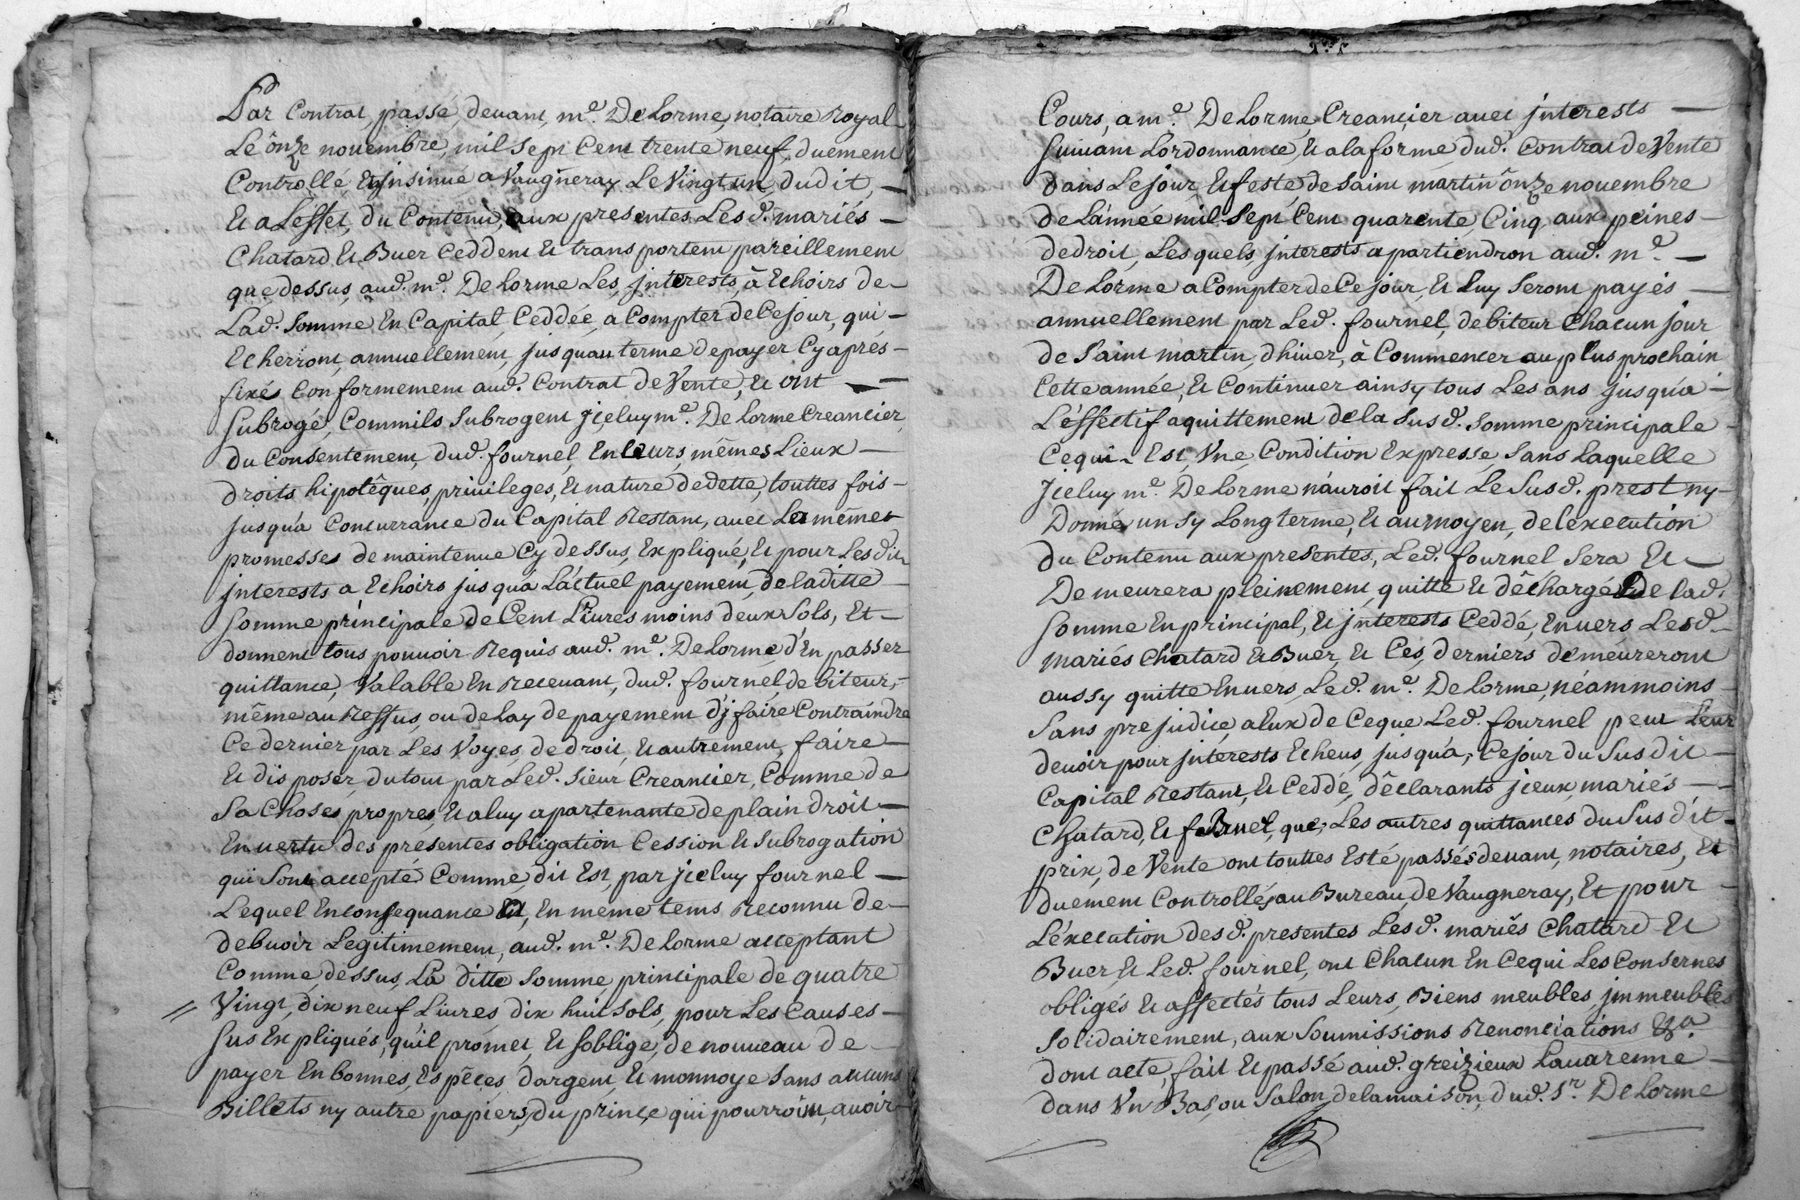 Par Contrat, passé, devant, m.e DeLorme, notaire Royal
Le ônze novembre, mil sept Cent trente neuf, duement
Controllé, Et jnsinué a Vaugneray Le Vingt un dudit, —
Et a Leffet, du Contenu, aux presentes Les d. mariés —
Chatard Et Buer Ceddent Et transportent pareillement
que dessus, aud. m.e DeLorme Les, jnterests, à Echoirs de
Lad. Somme En Capital, Ceddée, a Compter de Ce jour, qui —
Echerront, annuellement, jusquau terme de payer Cy aprés —
fixés Conformement aud. Contrat de Vente, Et ont — —
Subrogé, Commils Subrogent jceluy m.e DeLorme Creancier,
du Consentement, dud. fournel, En Leurs, mêmes Lieux —
droits hipotêques, privileges, Et nature de dette, touttes fois —
jusqua Concurrance du Capital Restant, avec Les mêmes
promesses de maintenue Cy dessus, Expliqué, Et pour Lesdits
jnterests a Echoirs jusqu'a L'actuel payement, de laditte —
Somme principale de Cent Livres moins deux Sols, Et —
donnent tous pouvoir Requis aud. m.e DeLorme, d'En passer
quittance, Valable En Recevant, dud. fournel debiteur, —
même au Reffus, ou deLay de payement d'j faire Contraindre
Ce dernier par Les Voyes, de droit, Et autrement, faire —
Et disposer, du tout par Led. Sieur Creancier, Comme de
Sa Choses propres, Et a luy apartenante de plain droit —
En vertu des presentes obligation Cession Et Subrogation
qui Sont accepté Comme, dit Est, par jceluy fournel —
Lequel En Consequance Et, En meme tems Reconnu de —
debvoir Legitimement, aud. m.e DeLorme acceptant
Comme, dessus, La ditte Somme, principale de quatre
// Vingt, dix neuf Livres dix huit Sols, pour Les Causes —
Sus Expliqués, qu'il promet, Et Soblige, de nouveau de —
payer En bonnes, Espêces d'argent, Et monnoye Sans aucuns
Billets ny autre papiers, du prince qui pourroint, avoir —
Cours, a m.e DeLorme, Creancier avec jnterests —
Suivant Lordonnance, Et a la forme, dud. Contrat de Vente
dans Le jour, Et feste, de Saint martin ônze novembre
de Lannée mil Sept Cent quarente, Cinq, aux peines —
de droit, Lesquels, jnterests apartiendron aud. m.e —
DeLorme a Compter de Ce jour, Et Luy Seront payés —
annuellement par Led. fournel, debiteur Chacun jour
de Saint martin, d'hiver, à Commencer au plus prochain
Cette année, Et Continuer ainsy tous Les ans jusqu'a —
L'éffectif aquittement de la Susd. Somme principale —
Ce qui Est, Vne, Condition Expresse, Sans Laquelle
jceluy m.e DeLorme n'auroit fait Le Susd. prest ny —
Donné un Sy Long terme, Et au moyen, de l'execution
du Contenu aux presentes, Led. fournel Sera Et —
Demeurera pleinement, quitte Et dêchargé De lad.
Somme En principal, Et jnterests Ceddé, Envers Lesd.
mariés Chatard Et Buer, Et Ces, derniers demeureront
aussy quitte Envers, Led. m.e DeLorme, néammoins —
Sans prejudice, a Eux de Ceque Led. fournel peut Leur
devoir pour jnterests Echeus, jusqu'a, Ce jour du Susdit —
Capital Restant, Et Ceddé, dêclarants jceux, mariés — —
Chatard, Et fournel, que, Les autres quittances du Susdit —
prix, de Vente ont touttes Esté passés devant, notaires, Et
duement Controllés au Bureau de Vaugneray, Et pour —
L'éxecution desd. presentes Lesd. mariês Chatard Et
Buer, Et Led. fournel, ont Chacun En Cequi Les Consernes
obligés Et affectés tous Leurs, Biens meubles, jmmeubles
Solidairement, aux Soumissions Renonciations &.a
dont acte, fait Et passé aud. greizieux Lavarenne —
dans Vn Bas, ou Salon, de la maison, dud. S.r DeLorme